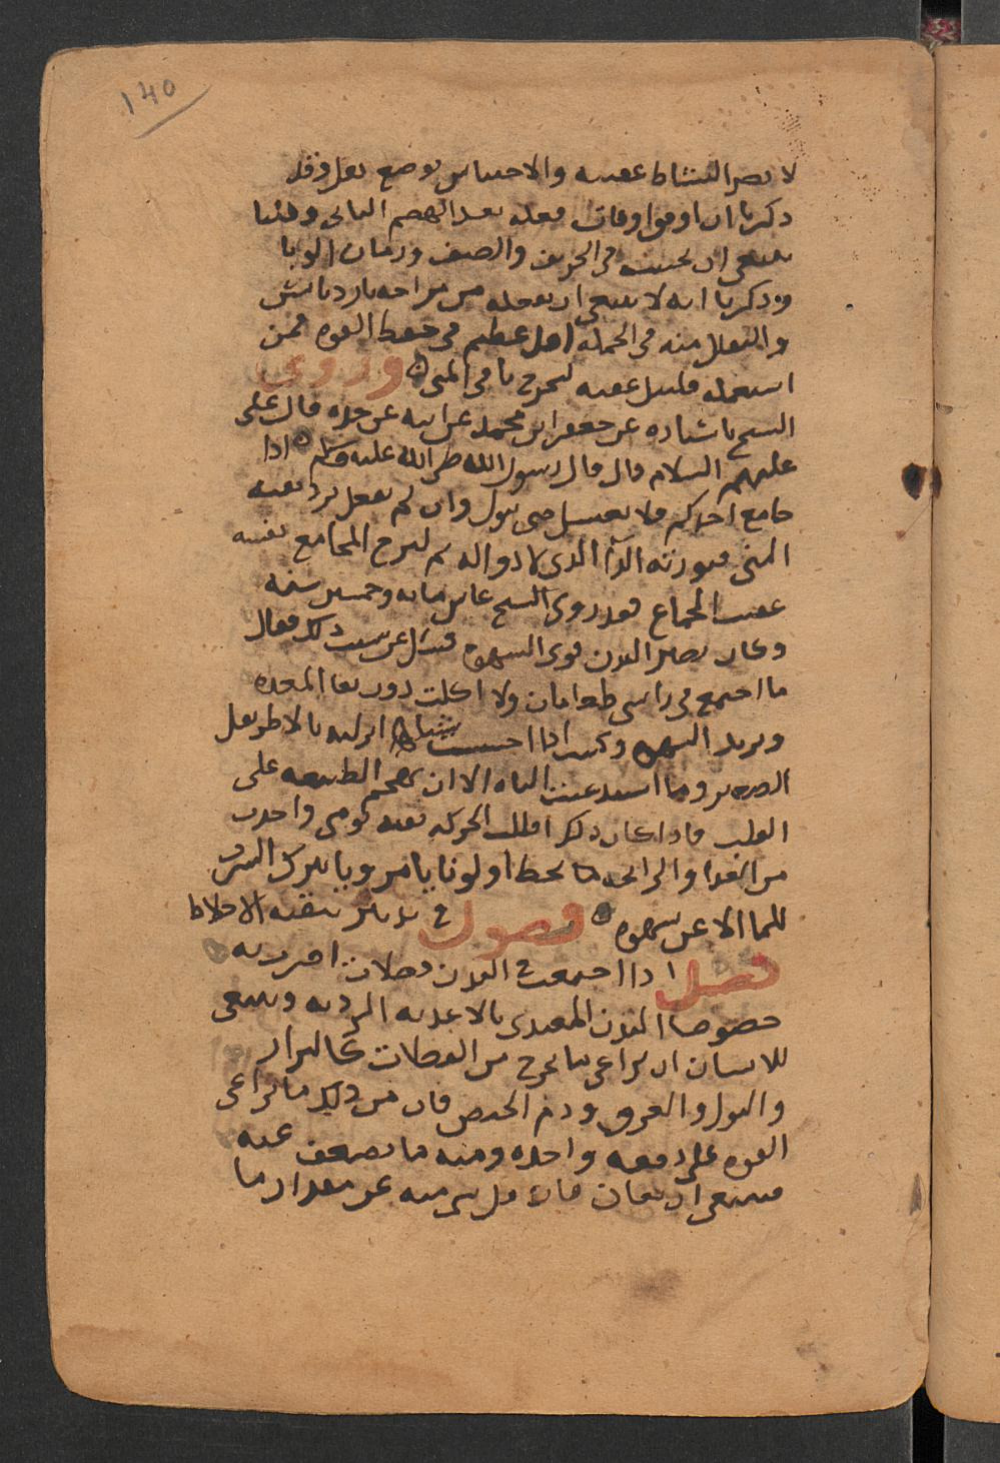 ١٤٥
لا يصر النشاط عقيبه والاحتباس بوضع نقل وقد
ذكرنا ان اوفق اوقات فعله بعد الهضم الثاني وهنا
ينبغي ان يجتنبه في الخريف والصيف وزمان الوبا
وذكرنا انه لا ينبغي ان يفعله من مزاجه بارد يابس
والتقلل منه في الجملة اصل عظيم في حفظ القوه فمن
استعمله فليبل عقيبه ليخرج ما في المنى وروى
الشيخ باسناده عن جعفر ابن محمد عن ابيه عن جده قال على
عليهم السلام قال قال رسول الله صلى الله عليه وسلم اذا
جامع احدكم فلا يغتسل حتى يبول وان لم يفعل تردد بقيه
المنى فيورثه الدآ الذى لا دوا له ثم ليرح المجامع نفسه
عقيب الجماع فقد روى الشيخ عاش مايه وخمسين سنه
وكان نضير البدن قوى الشهوه فسئل عن سبب ذلك فقال
ما اجتمع في راسى طعامان ولا اكلت دون نقا المعده
ويزيد الشهوه وكنت اذا احسست ازلته بالاطريفل
الصغير وما استدعيت الباه الا ان تهجم الطبيعه على
القلب فاذا كان ذلك اقللت الحركه بقيه يومى واخذت
من الغدا والرايحه ما يحفظ او لونا ويا بترك الشرب
للما الا عن شهوه فصول في تدبير بقيه الاخلاط
فصل اذا اجتمعت في البدن فضلات اضرت به
خصوصا البدن المغتذى بالاغذيه الرديه وينبغى
للانسان ان يراعى ما يخرج من الفضلات كالبراز
والبول والعرق ودم الحيض فان من ذلك ما يراعى
القوه على دفعه واحده ومنه ما يضعف عنه
فينبغى ان يعان فان قل شى منه عن مقدار ما